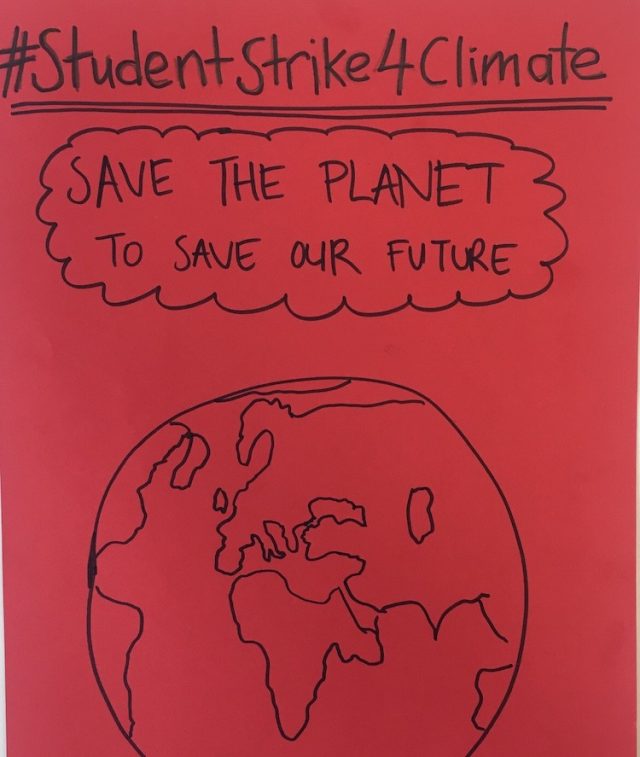 #StudentStrike4Climate
SAVE THE PLANET
TO SAVE OUR FUTURE